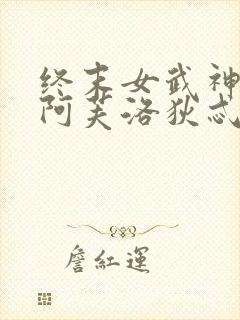 终末女武神
阿芙洛狄忒
詹紅運